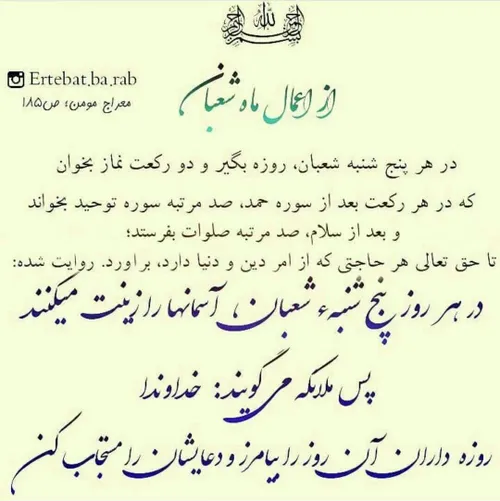 بسم الله الرحمن الرحیم
Ertebat.ba.rab
معراج مومن؛ ص۱۸۵
از اعمال ماه شعبان
در هر پنج شنبه شعبان، روزه بگیر و دو رکعت نماز بخوان
که در هر رکعت بعد از سوره حمد، صد مرتبه سوره توحید بخواند
و بعد از سلام، صد مرتبه صلوات بفرستد؛
تا حق تعالی هر حاجتی که از امر دین و دنیا دارد، براورد. روایت شده:
در هر روز پنج شنبهء شعبان، آسمانها را زینت میکنند
پس ملائکه می گویند: خداوندا
روزه داران آن روز را بیامرز و دعایشان را مستجاب کن